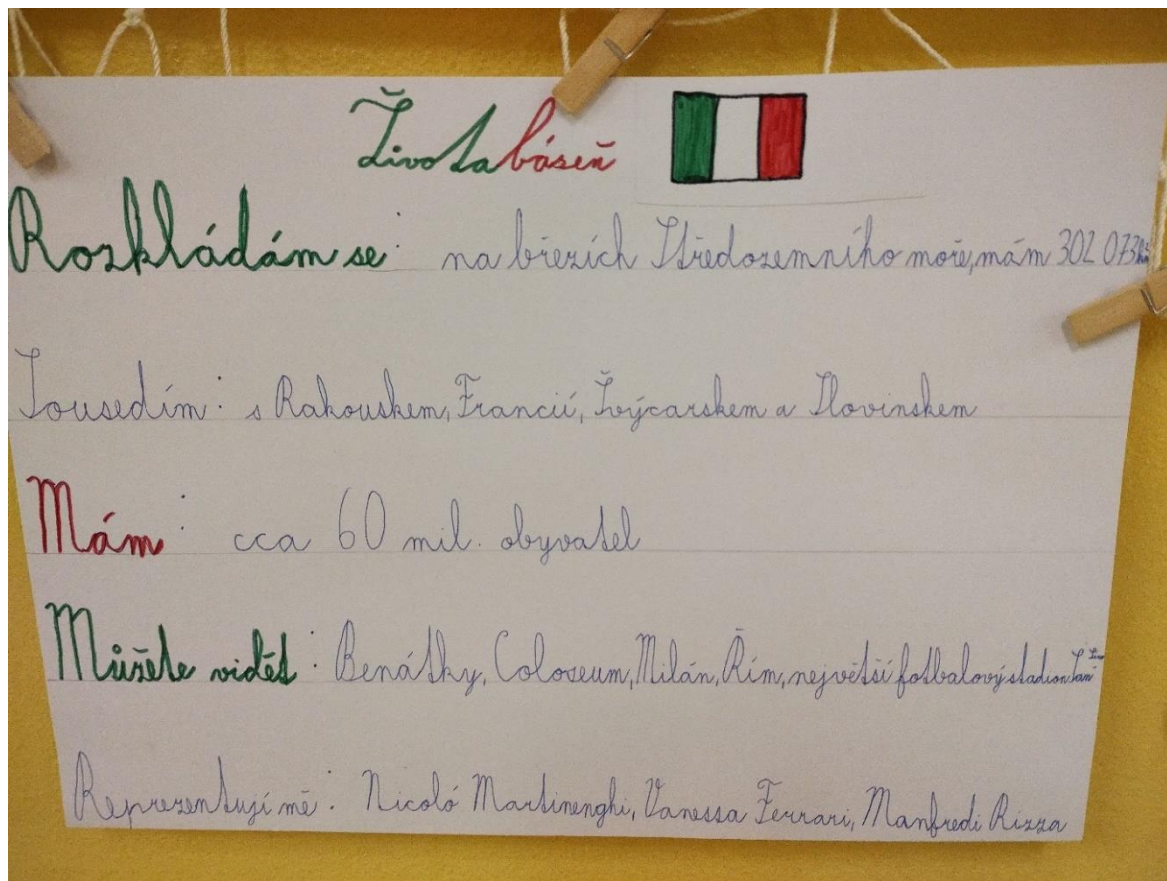 Životabáseň
Rozkládám se: na březích Středozemního moře, mám 302 073
Sousedím: s Rakouskem, Francií, Švýcarskem a Slovinskem
Mám: cca 60 mil. obyvatel
Můžete vidět: Benátky, Coloseum, Milán, Řím, největší fotbalový stadion San
Reprezentují mě: Nicoló Martinenghi, Vanessa Ferrari, Manfredi Rizza